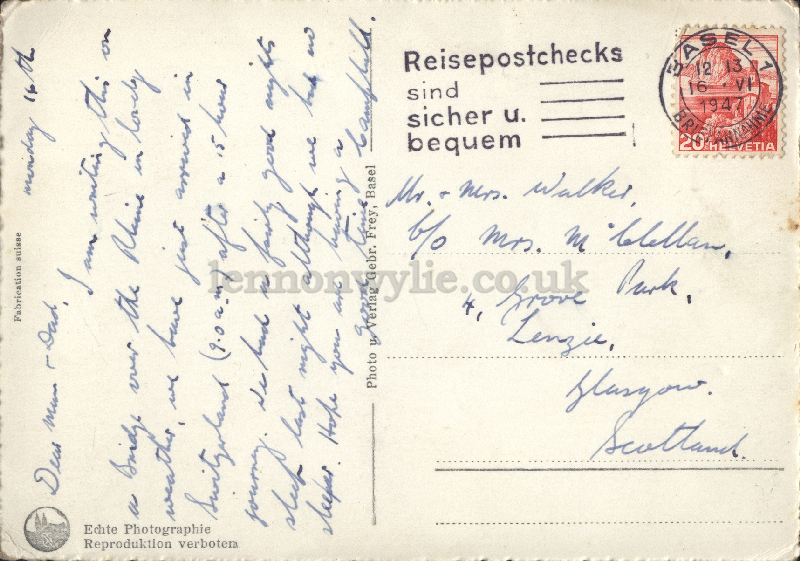 monday 16th
Dear Mum & Dad,
I am writing this on
a Bridge over the Rhine in lovely
weather, we have just arrived in
Switzerland (9.0 a.m) after a 15 hour
journey. We had a fairly good nights
sleep last night although we had no
sleeper. Hope you are having a
good time Campbell.
Fabrication suisse
Echte Photographie
Reproduktion verboten
Photo u. Verlag Gebr. Frey, Basel
Reisepostchecks
sind
sicher u.
bequem
BASEL 1
12 13
16 VI
1947
BRIEFANNAHME
20 HELVETIA
Mr. & Mrs. Walker,
c/o Mrs. McClellan,
4, Grove Park,
Lenzie,
Glasgow.
Scotland.
lennonwylie.co.uk